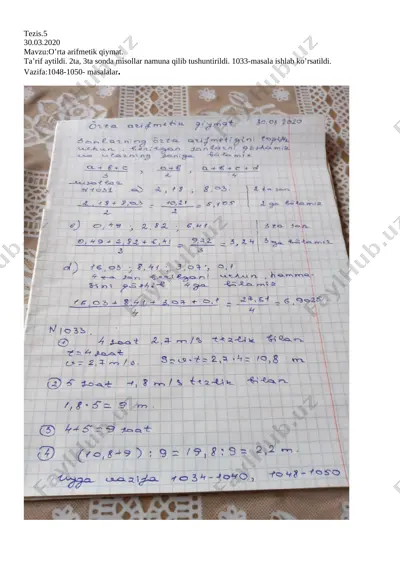 Tezis.5
30.03.2020
Mavzu:O'rta arifmetik qiymat.
Ta'rif aytildi. 2ta, 3ta sonda misollar namuna qilib tushuntirildi. 1033-masala ishlab ko'rsatildi.
Vazifa:1048-1050- masalalar.
Oʻrta arifmetik qiymat 30.03.2020
Sonlarning oʻrta arifmetigini topish
uchun berilgan sonlarni qoʻshamiz
va ularning soniga boʻlamiz
(a+b+c)/3, (a+b)/2, (a+b+c+d)/4
misollar
N1031 a) 2,18, 8.03. 2 ta son
(2.18+8,03)/2 = 10,21/2 = 5,105 2 ga boʻlamiz
c) 0,49, 2,82, 6,41 3 ta son
(0,49+2,82+6,41)/3 = 9,72/3 = 3,24 3 ga boʻlamiz
d) 16,03, 8,41, 3,07, 0,1
4 ta son berilgani uchun, hamma-
sini qoʻshib 4 ga boʻlamiz
(16,03+8,41+3,07+0,1)/4 = 27,61/4 = 6,9025
N1033.
① 4 soat 2,7 m/s tezlik bilan
t=4 soat
v=2,7 m/s. S=v·t=2,7·4=10,8 m
② 5 soat 1,8 m/s tezlik bilan
1,8·5=9 m.
③ 4+5=9 soat
④ (10,8+9):9=19,8:9=2,2 m.
Uyga vazifa 1034-1040, 1048-1050
FaylHub.uz